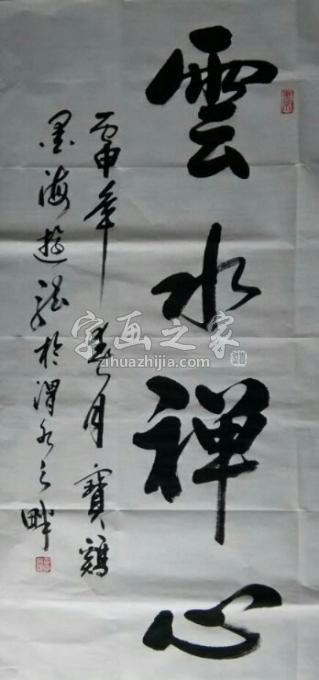 雲水禅心
丙申年春月寳鷄
墨海遊龍於渭水之畔
字画之家
zihuazhijia.com